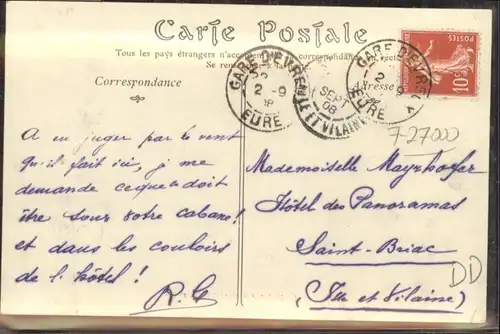 Carte Postale
Tous les pays étrangers n'acceptent correspondance
Se ren
Correspondance
Adresse
GARE D'EVREUX
2-9
08
EURE
SEPT
08
ET VILAINE
GARE D'EVREUX
2
9
EURE
10c
727000
A en juger par le vent
qu'il fait ici, je me
demande ce que ce doit
être sous votre cabane!
et dans les couloirs
de l'hôtel!
R.G
Mademoiselle Mayrhofer
Hôtel des Panoramas
Saint-Briac
(Ille et Vilaine)
DD